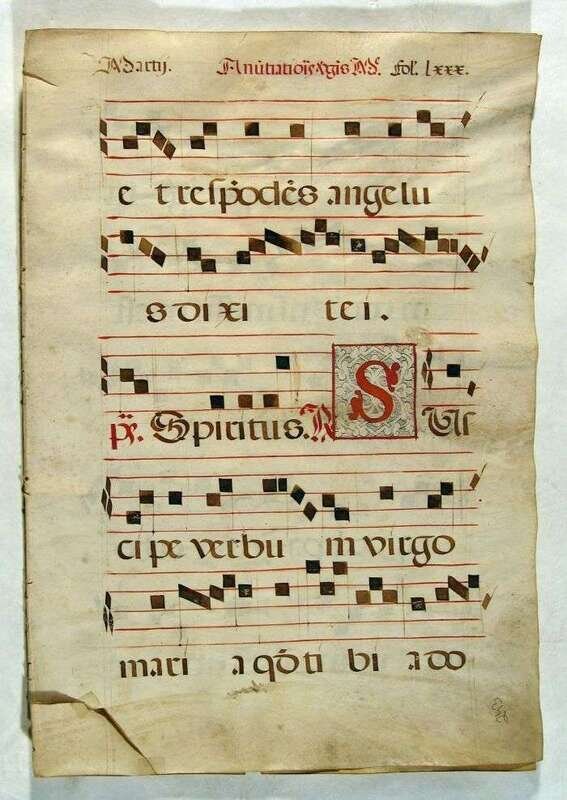 Anūtiatiōis Fol. lxxx.
e t respōdēs angelu
s dixi te i .
Spiritus. S us
ci pe verbu m virgo
mari a qđ ti bi a do